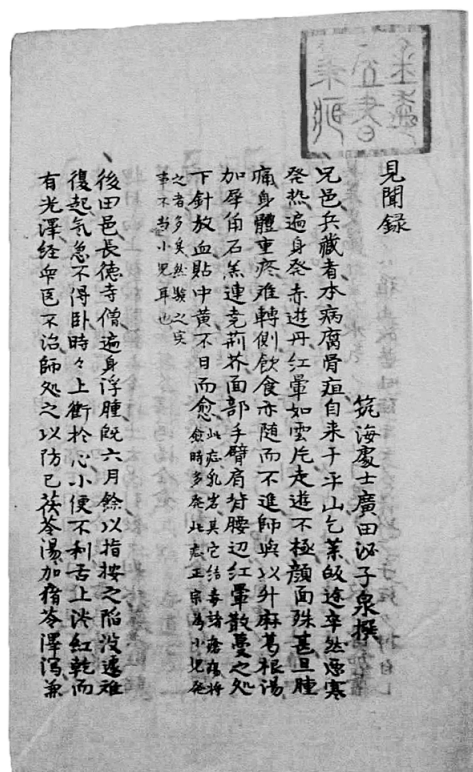 見聞録
筑海處士廣田泌子泉撰
兄邑兵藏者本病腐骨疽自来于平山乞薬皈途卒然寒
発熱遍身発赤遊丹紅暈如雲片走遊不極顔面殊甚且腫
痛身體重疼难轉側飲食亦随而不進師與以升麻葛根湯
加犀角石羔連壳荊芥面部手臂肩背腰辺紅暈散蔓之処
下針放血貼中黄不日而愈此症乳岩其它結毒諸瘡瘍将
愈時多発此症正宗為小児発
之者多矣然驗之实
事不尚小児耳也
後田邑長徳寺僧遍身浮腫既六月餘以指按之陥没遽难
復起气急不得卧時々上衝於心小便不利舌上淡紅乾而
有光澤経衆医不治師処之以防已茯苓湯加猪苓澤瀉兼